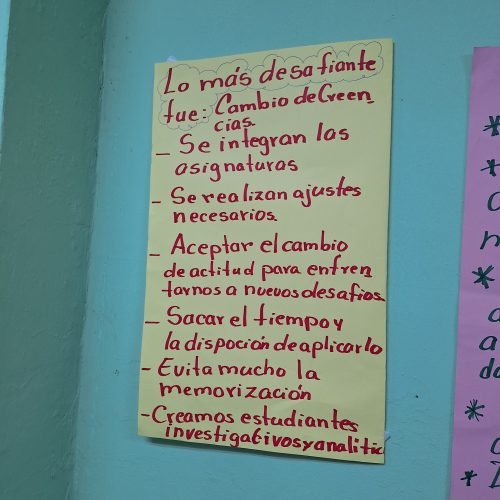 Lo más desafiante
fue: Cambio de Creen
cias.
– Se integran las
asignaturas
– Se realizan ajustes
necesarios.
– Aceptar el cambio
de actitud para enfren
tarnos a nuevos desafios.
– Sacar el tiempo y
la dispoción de aplicarlo
- Evita mucho la
memorización
- Creamos estudiantes
investigativos y analitic